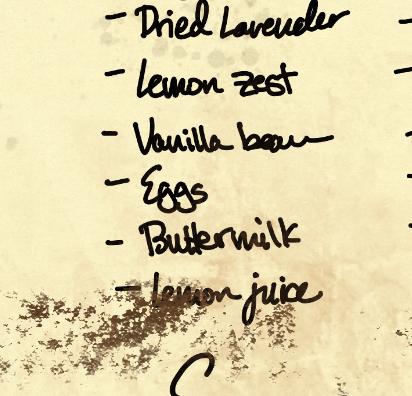 - Dried Lavender
- Lemon zest
- Vanilla bean
- Eggs
- Buttermilk
- Lemon juice